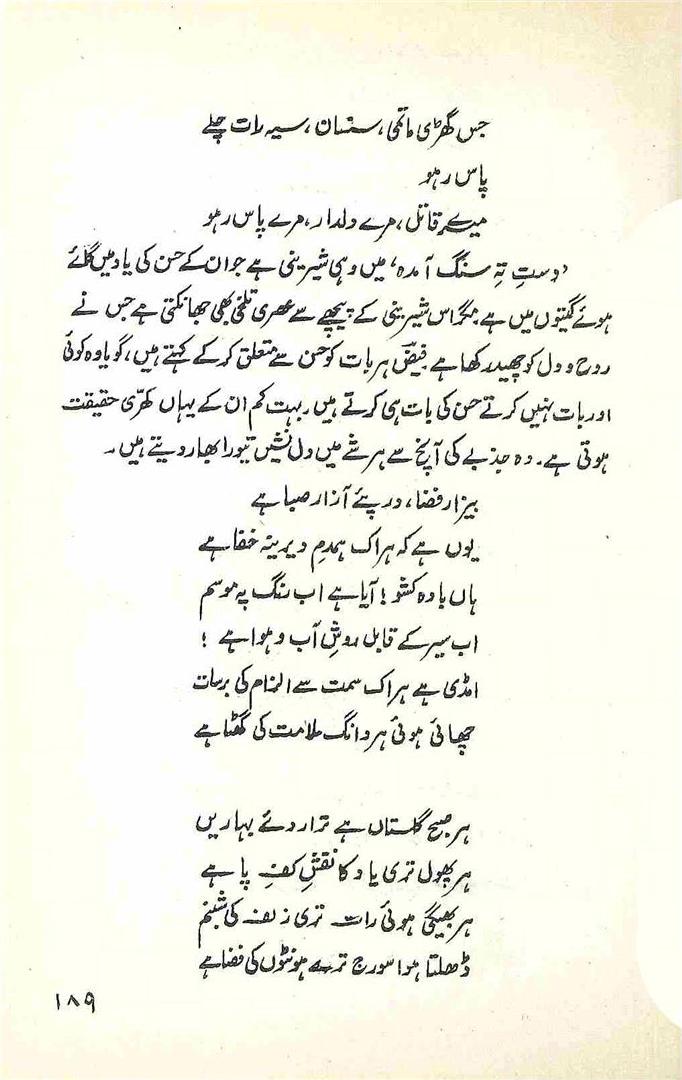 جس گھڑی ماتمی، سنسان، سیہ رات چلے
پاس رہو
میرے قاتل، مرے دلدار، مرے پاس رہو
’دستِ تہِ سنگ آمدہ‘ میں وہی شیرینی ہے جو ان کے حسن کی یاد میں گائے
ہوئے گیتوں میں ہے مگر اس شیرینی کے پیچھے سے عصری تلخی بھی جھانکتی ہے جس نے
روح و دل کو چھید رکھا ہے فیضؔ ہر بات کو حسن سے متعلق کر کے کہتے ہیں، گویا وہ کوئی
اور بات نہیں کرتے حسن کی بات ہی کرتے ہیں۔ بہت کم ان کے یہاں کھرّی حقیقت
ہوتی ہے۔ وہ جذبے کی آنچ سے ہر شے میں دل نشیں تیور ابھار دیتے ہیں۔
بیزار فضا، درپئے آزار صبا ہے
یوں ہے کہ ہر اک ہمدمِ دیرینہ خفا ہے
ہاں بادہ کشو! آیا ہے اب رنگ پہ موسم
اب سیر کے قابل روشِ آب و ہوا ہے !
امڈی ہے ہر اک سمت سے الزام کی برسات
چھائی ہوئی ہر دانگ ملامت کی گھٹا ہے
ہر صبح گلستاں ہے ترا روئے بہاریں
ہر پھول تری یاد کا نقشِ کفِ پا ہے
ہر بھیگی ہوئی رات تری زلف کی شبنم
ڈھلتا ہوا سورج ترے ہونٹوں کی فضا ہے
۱۸۹